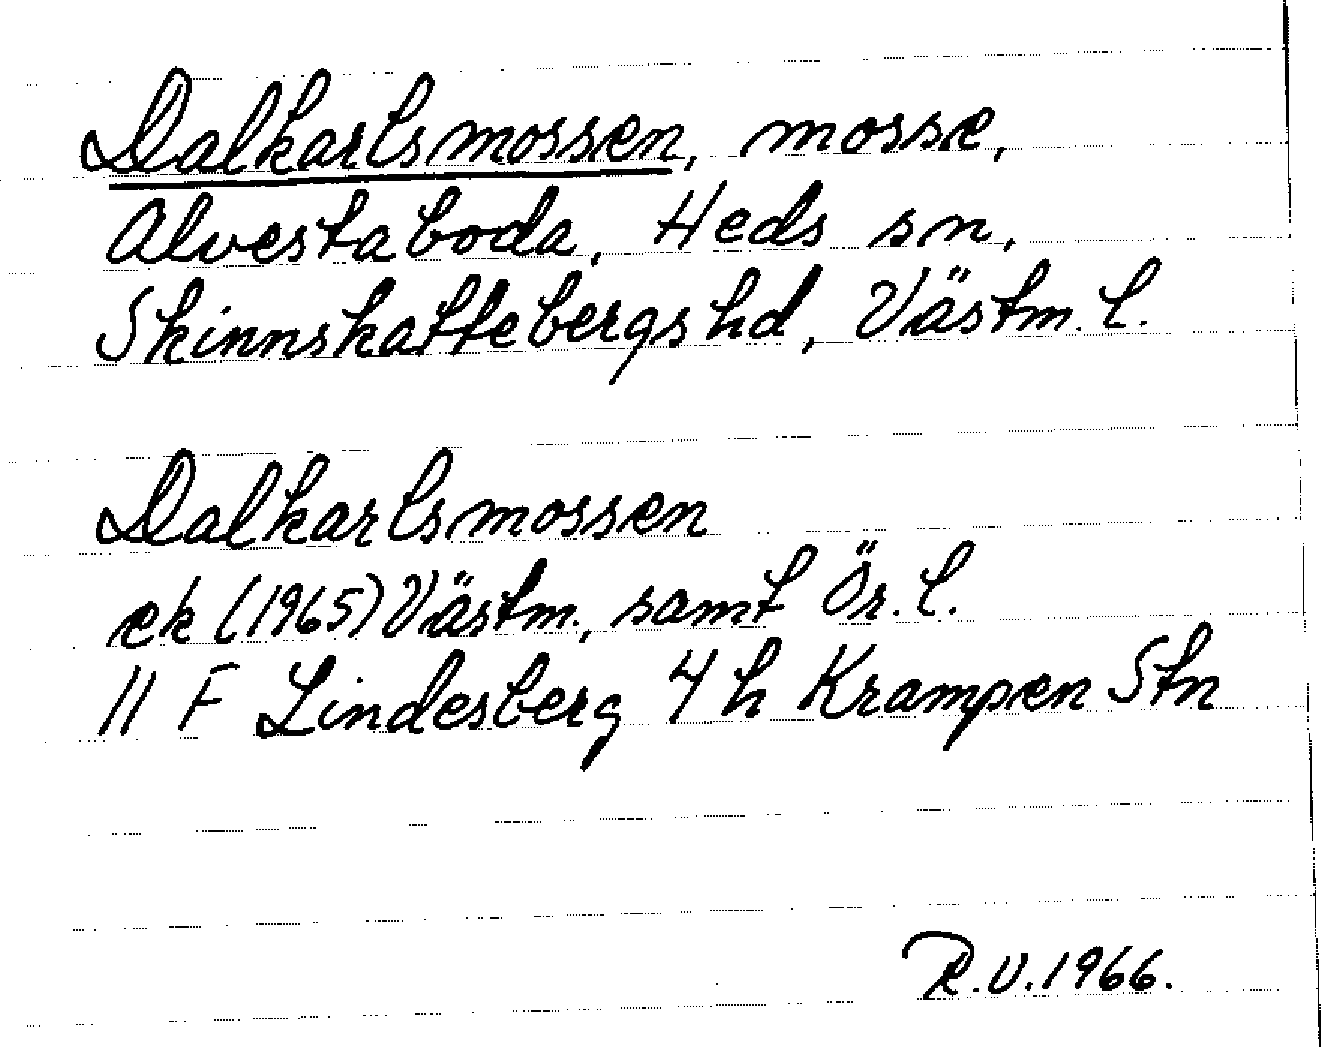 Dalkarlsmossen, mosse,
Alvestaboda, Heds sn,
Skinnskattebergs hd, Västm. l.
Dalkarlsmossen
ek (1965) Västm., samt Ör. l.
11 F Lindesberg 4 h Krampen Stn
R.V. 1966.